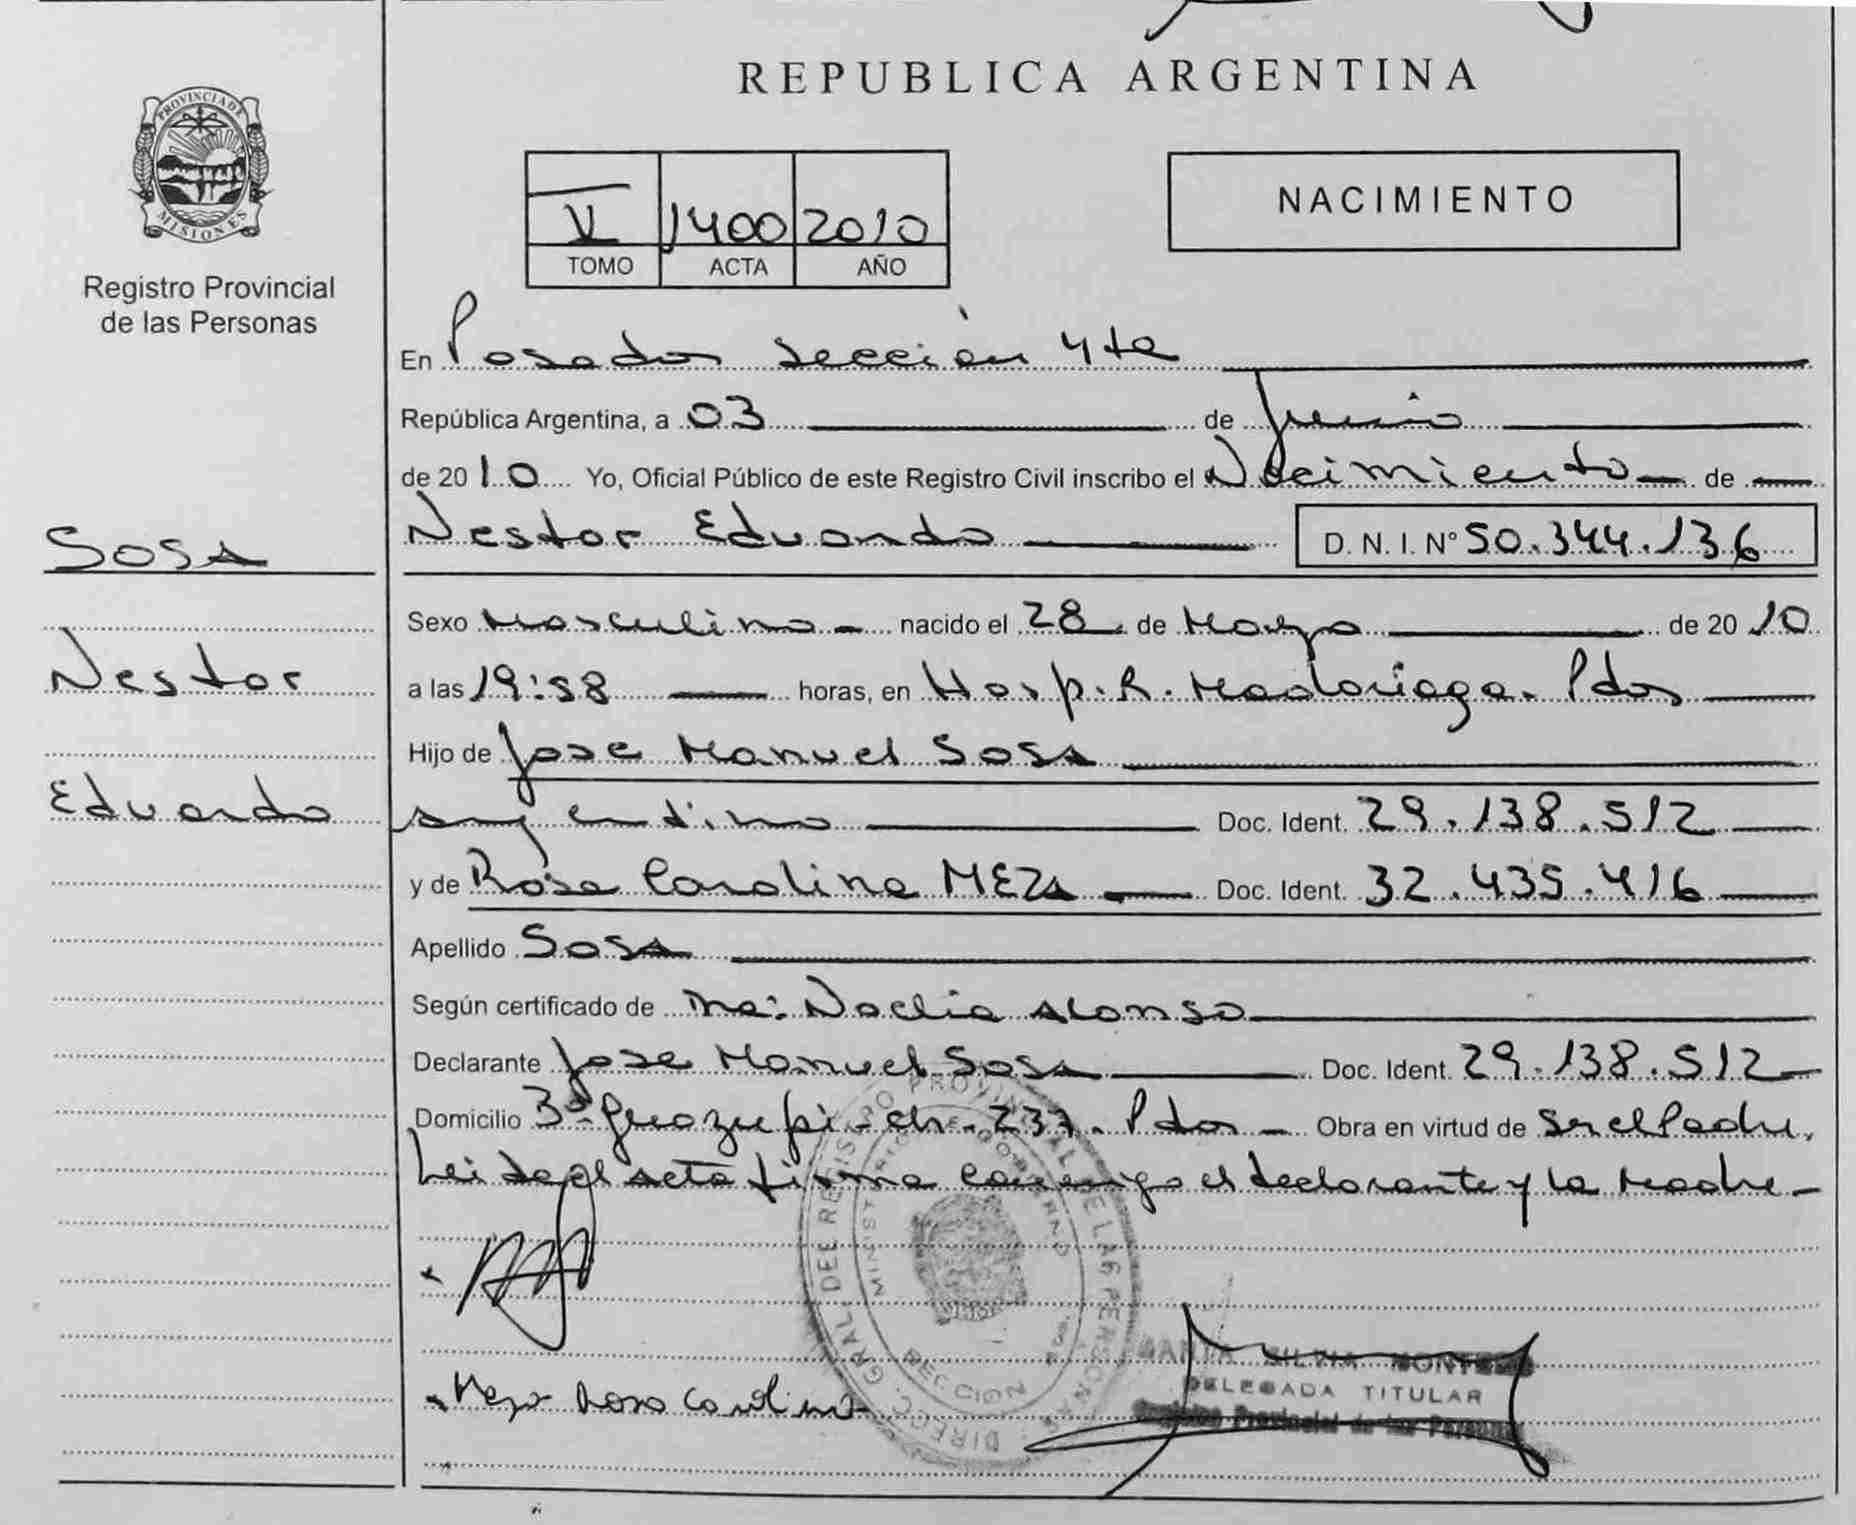 REPUBLICA ARGENTINA
PROVINCIA DE MISIONES
Registro Provincial
de las Personas
V 1400 2010
TOMO ACTA AÑO
NACIMIENTO
En Posadas sección 4ta
República Argentina, a 03 de junio
de 2010 Yo, Oficial Público de este Registro Civil inscribo el Nacimiento de
SOSA
Nestor Eduardo D. N. I. N° 50.344.136
Sexo Masculino nacido el 28 de Mayo de 2010
Nestor
a las 19:58 horas, en Hosp. R. Madariaga. Pdas
Hijo de Jose Manuel Sosa
Eduardo
argentino Doc. Ident. 29.138.512
y de Rosa Carolina MEZA Doc. Ident. 32.435.416
Apellido Sosa
Según certificado de Noelia Alonso
Declarante Jose Manuel Sosa Doc. Ident. 29.138.512
Domicilio ch. 237. Pdas Obra en virtud de Ser el Padre.
Leida el acta firma conmigo el declarante y la Madre
DIRECC. GRAL. DEL REGISTRO PROVINCIAL DE LAS PERSONAS
MINISTERIO DE GOBIERNO
SECCION
Meza Rosa Carolina
SILVIA MONTERO
DELEGADA TITULAR
Registro Provincial de las Personas